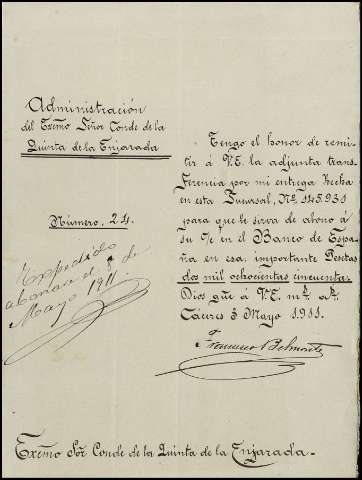 Administración
del Excmo Señor Conde de la
Quinta de la Enjarada
Número. 24.
Expedido
abonaré el 8 de
Mayo 1911.
Tengo el honor de remi-
tir á V.E. la adjunta trans-
ferencia por mi entrega hecha
en esta Sucursal, Nº 145.931
para que le sirva de abono á
su c/c en el Banco de Espa-
ña en esa, importante Pesetas
dos mil ochocientas cincuenta.
Dios gue á V.E. ms. as.
Cáceres 3 Mayo 1.911.
Francisco Belmonte
Excmo Sor Conde de la Quinta de la Enjarada.